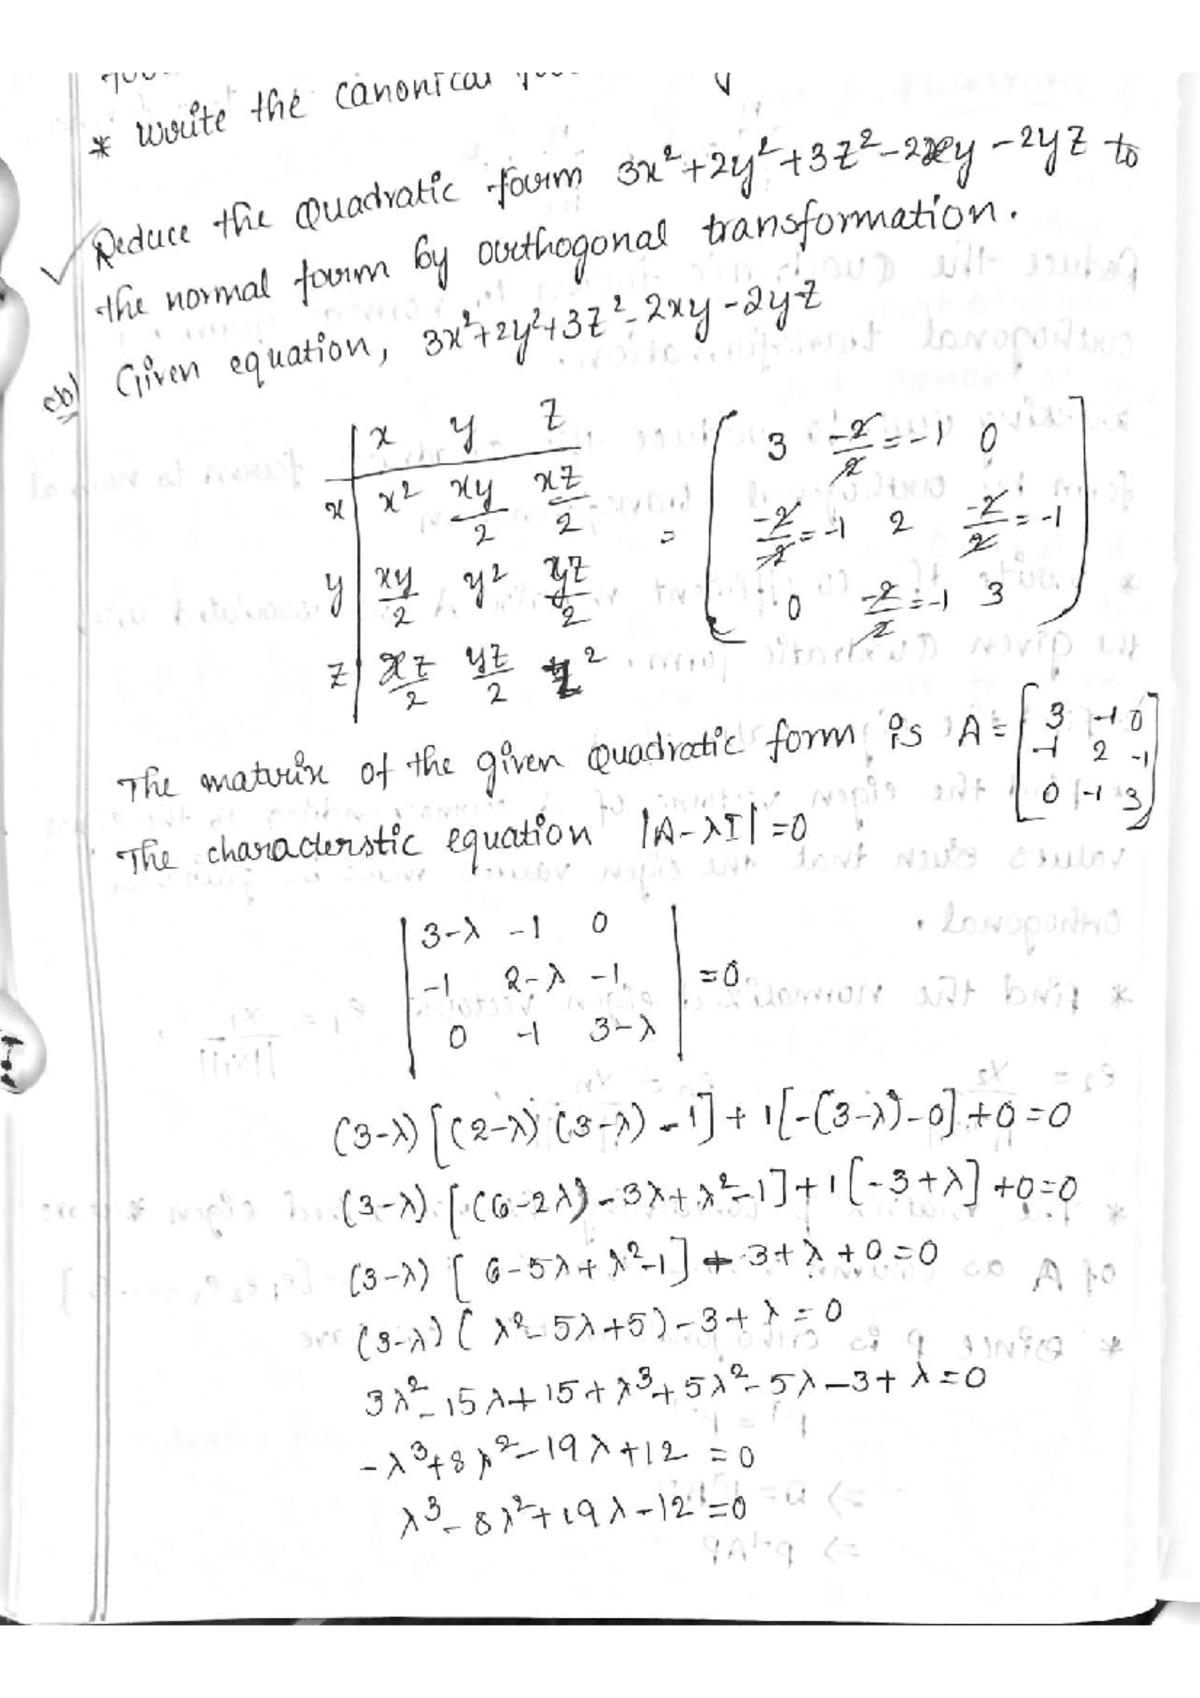 * Write the canonical
Reduce the Quadratic form 3x²+2y²+3z²-2xy-2yz to
the normal form by orthogonal transformation.
Given equation, 3x²+2y²+3z²-2xy-2yz
x y z
x x² xy/2 xz/2
y xy/2 y² yz/2
z xz/2 yz/2 z²
= [ 3 -2/2=-1 0
-2/2=-1 2 -2/2=-1
0 -2/2=-1 3 ]
The matrix of the given Quadratic form is A = [ 3 -1 0
-1 2 -1
0 -1 3 ]
The characterstic equation |A-λI|=0
| 3-λ -1 0 |
| -1 2-λ -1 | =0
| 0 -1 3-λ |
(3-λ)[(2-λ)(3-λ)-1]+1[-(3-λ)-0]+0=0
(3-λ)[(6-2λ)-3λ+λ²-1]+1[-3+λ]+0=0
(3-λ)[6-5λ+λ²-1]-3+λ+0=0
(3-λ)(λ²-5λ+5)-3+λ=0
3λ²-15λ+15+λ³+5λ²-5λ-3+λ=0
-λ³+8λ²-19λ+12=0
λ³-8λ²+19λ-12=0